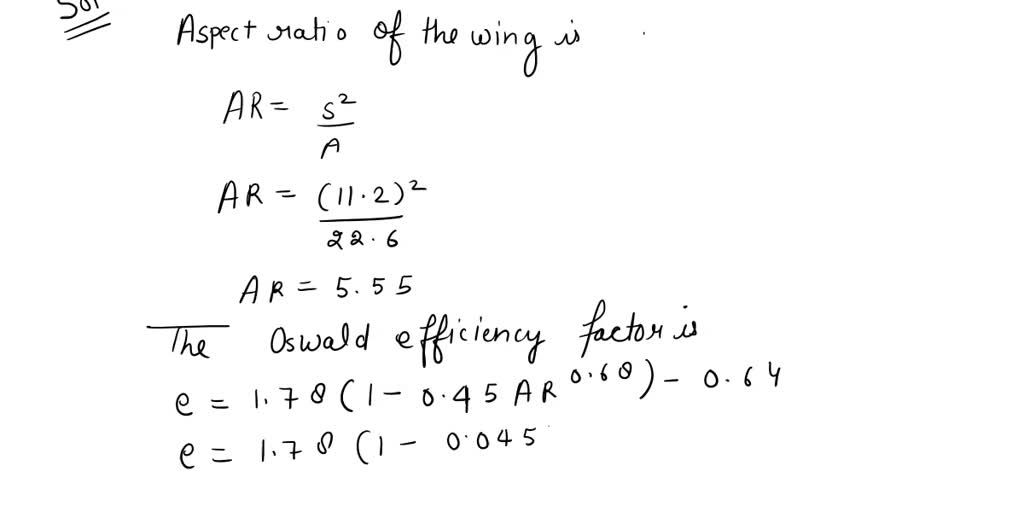 Sol
Aspect ratio of the wing is
AR = s²/A
AR = (11.2)²/22.6
AR = 5.55
The Oswald efficiency factor is
e = 1.78 (1 - 0.45 AR^0.68) - 0.64
e = 1.78 (1 - 0.045